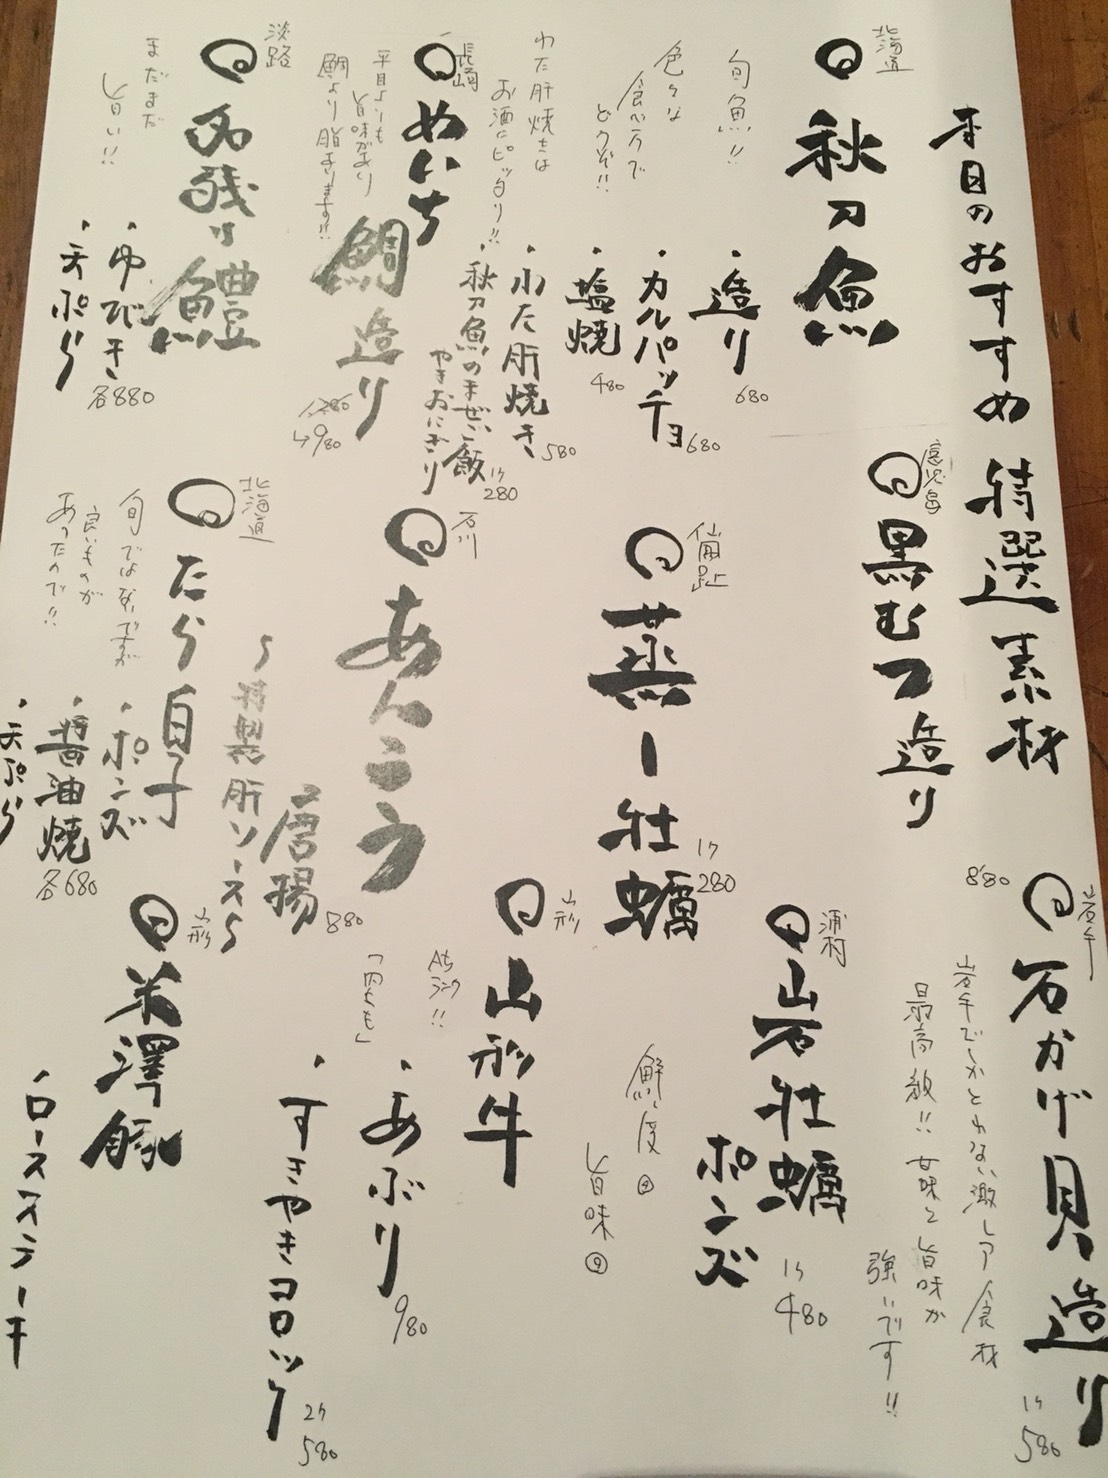 本日のおすすめ 特選素材
北海道
秋刀魚
旬魚!!
色々な
食べ方で
どうぞ!!
・造り
680
・カルパッチョ
680
・塩焼
480
・わた肝焼き
580
わた肝焼きは
お酒にピッタリ!!
・秋刀魚のまぜご飯
やきおにぎり
1ケ
280
長崎
めいち鯛造り
平目よりも
旨味があり
鯛より脂あります!!
1,280
↳980
淡路
名残り鱧
まだまだ
旨い!!
・ゆびき
・天ぷら
各880
鹿児島
黒むつ造り
880
仙鳳趾
蒸し牡蠣
1ケ
280
石川
あんこう
唐揚
〜特製肝ソース〜
880
北海道
たら白子
旬ではないですが
良いものが
あったので!!
・ポンズ
・醤油焼
・天ぷら
各680
岩手
石かげ貝造り
岩手でしかとれない激レア食材
最高級!! 甘味と旨味が
強いです!!
1ケ
580
浦村
岩牡蠣
ポンズ
鮮度
旨味
1ケ
480
山形
山形牛
A5
ランク!!
「内もも」
・あぶり
980
・すきやきコロッケ
2ケ
580
山形
米澤豚
・ロースステーキ